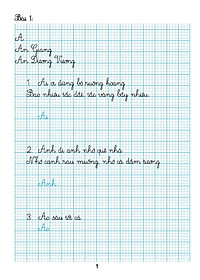 Bài 1:
A
An Giang
An Dương Vương
1. Ai ơi đừng bỏ ruộng hoang
Bao nhiêu tấc đất, tấc vàng bấy nhiêu.
Ai
2. Anh đi anh nhớ quê nhà
Nhớ canh rau muống, nhớ cà dầm tương
Anh
3. Ao sâu tốt cá
Ao
1